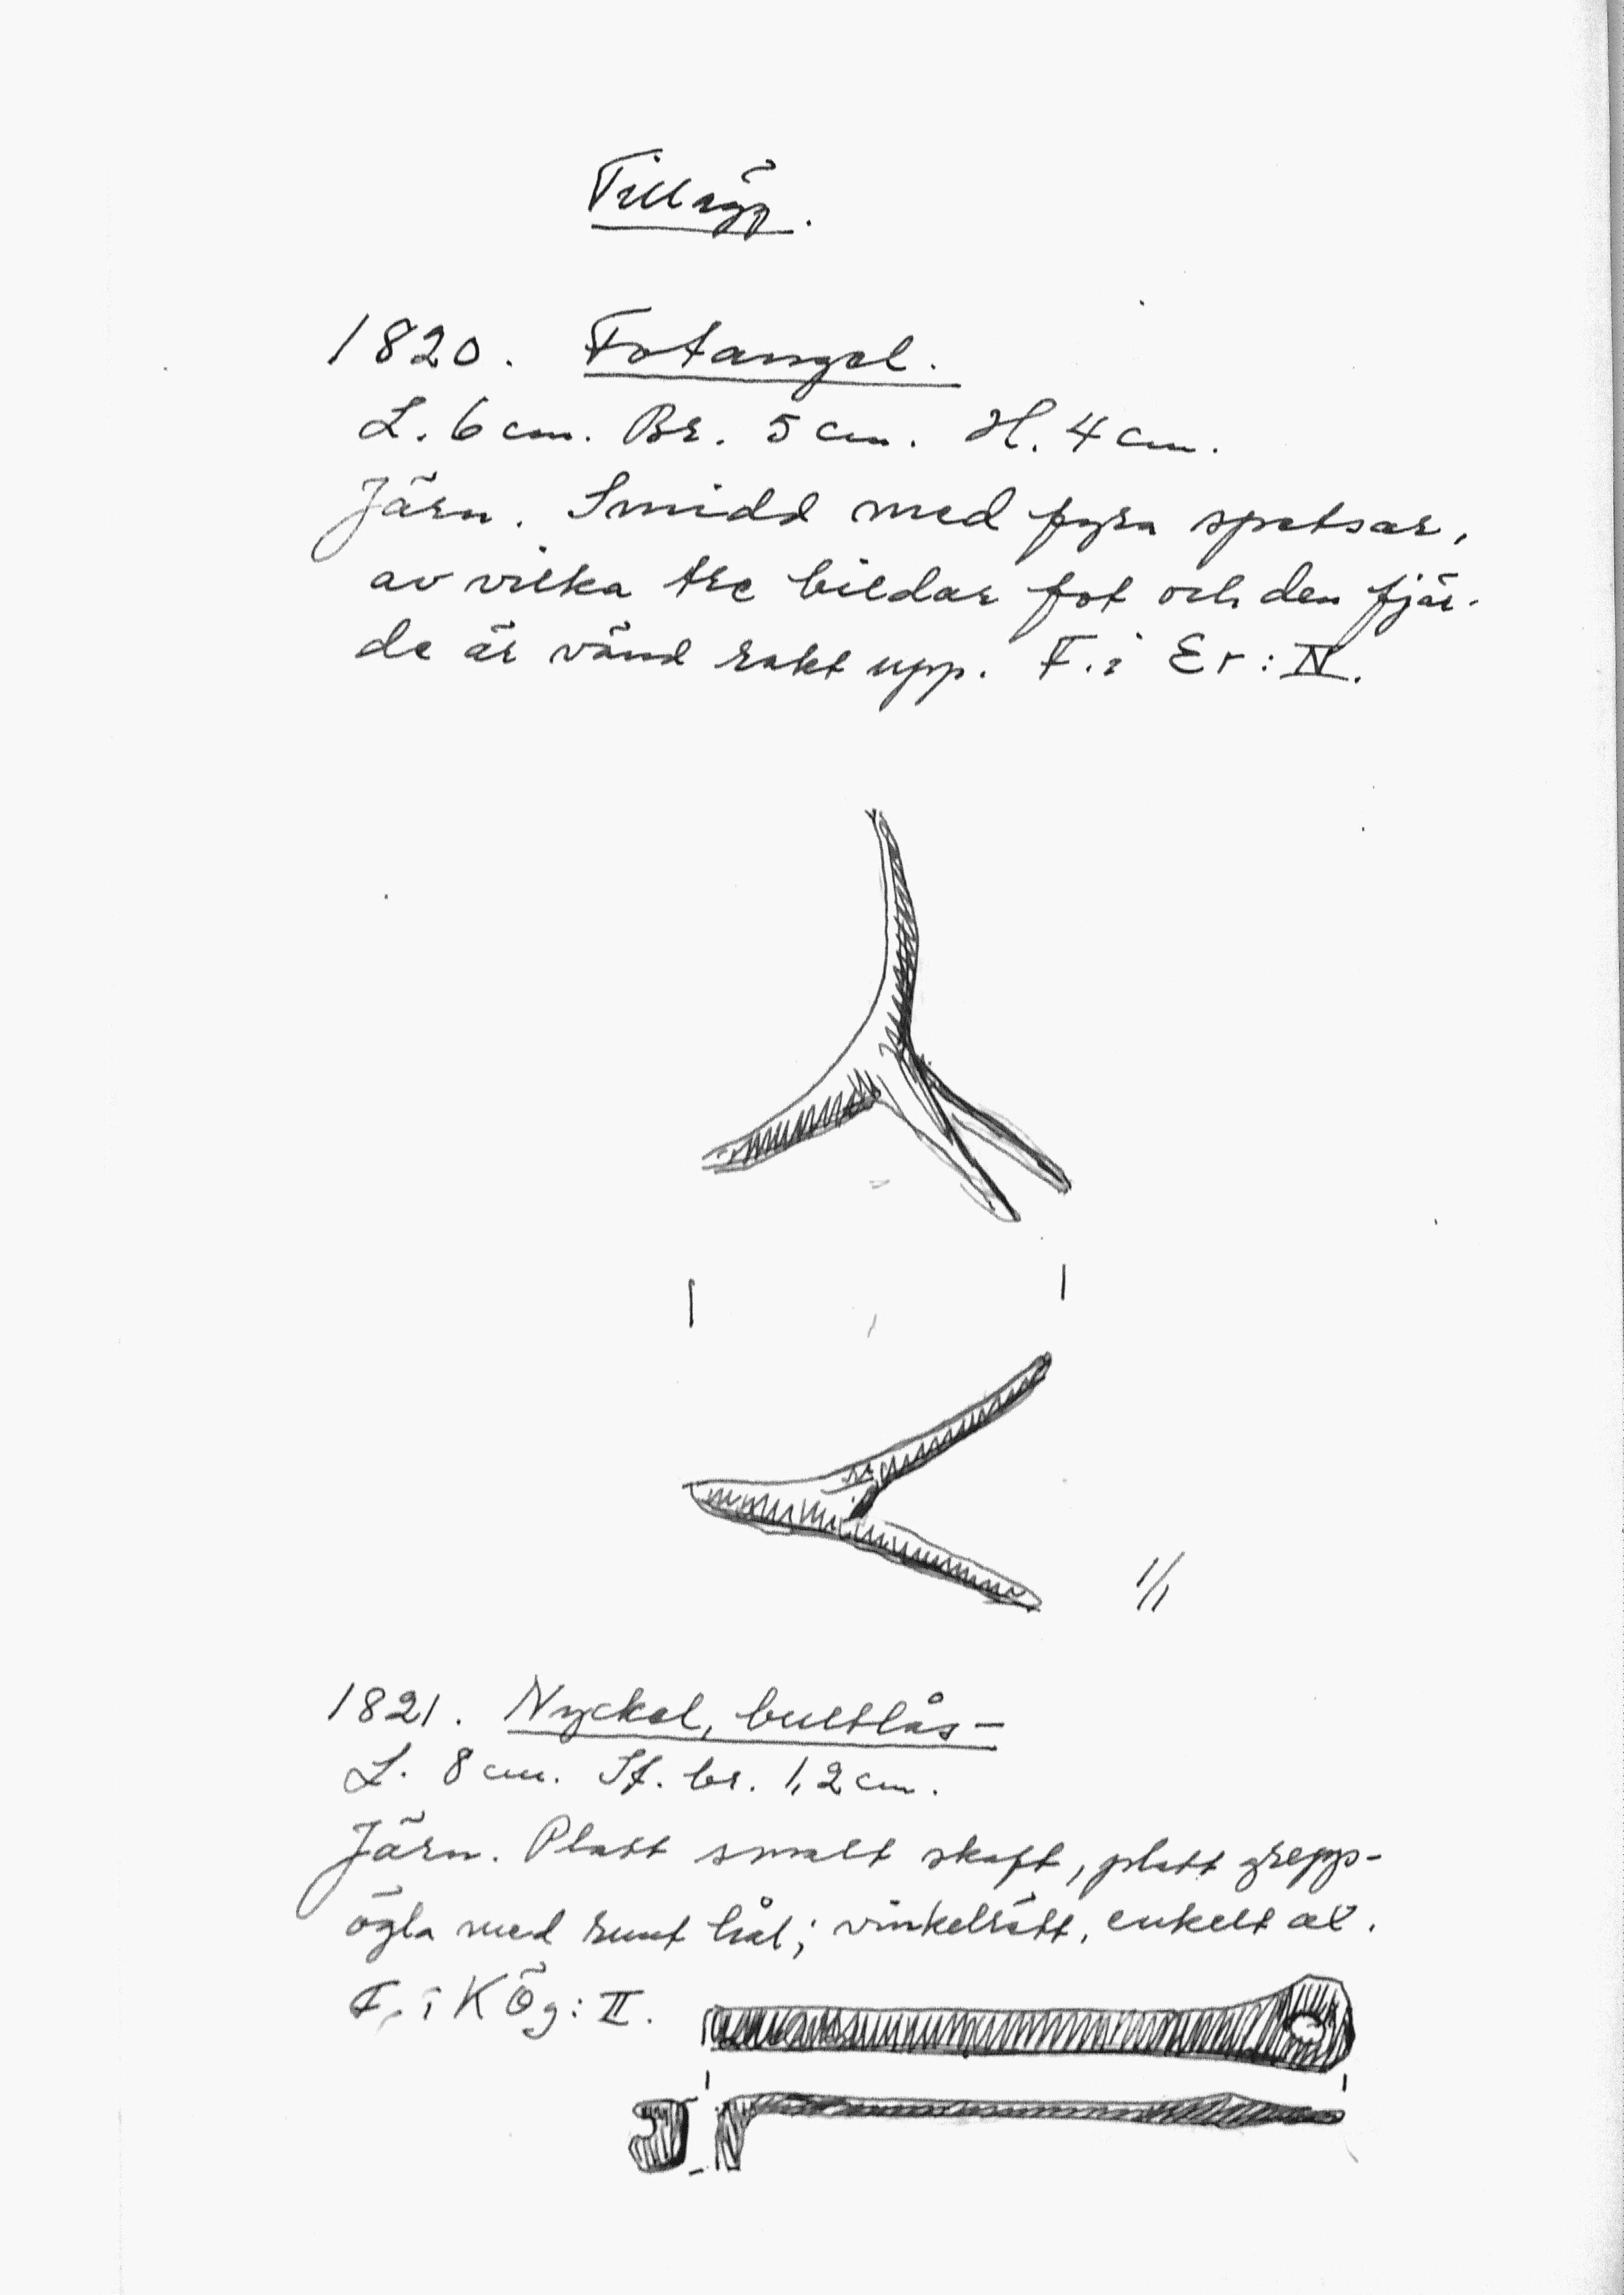 Tillägg.
1820. Fotangel.
L. 6 cm. Br. 5 cm. H. 4 cm.
Järn. Smidd med fyra spetsar,
av vilka tre bildar fot och den fjär-
de är vänd rakt upp. F. i Er: IV.
1/1
1821. Nyckel, bultlås-
L. 8 cm. St. br. 1,2 cm.
Järn. Platt smalt skaft, platt grepp-
ögla med runt hål; vinkelrätt, enkelt ax.
F. i KÖg: II.